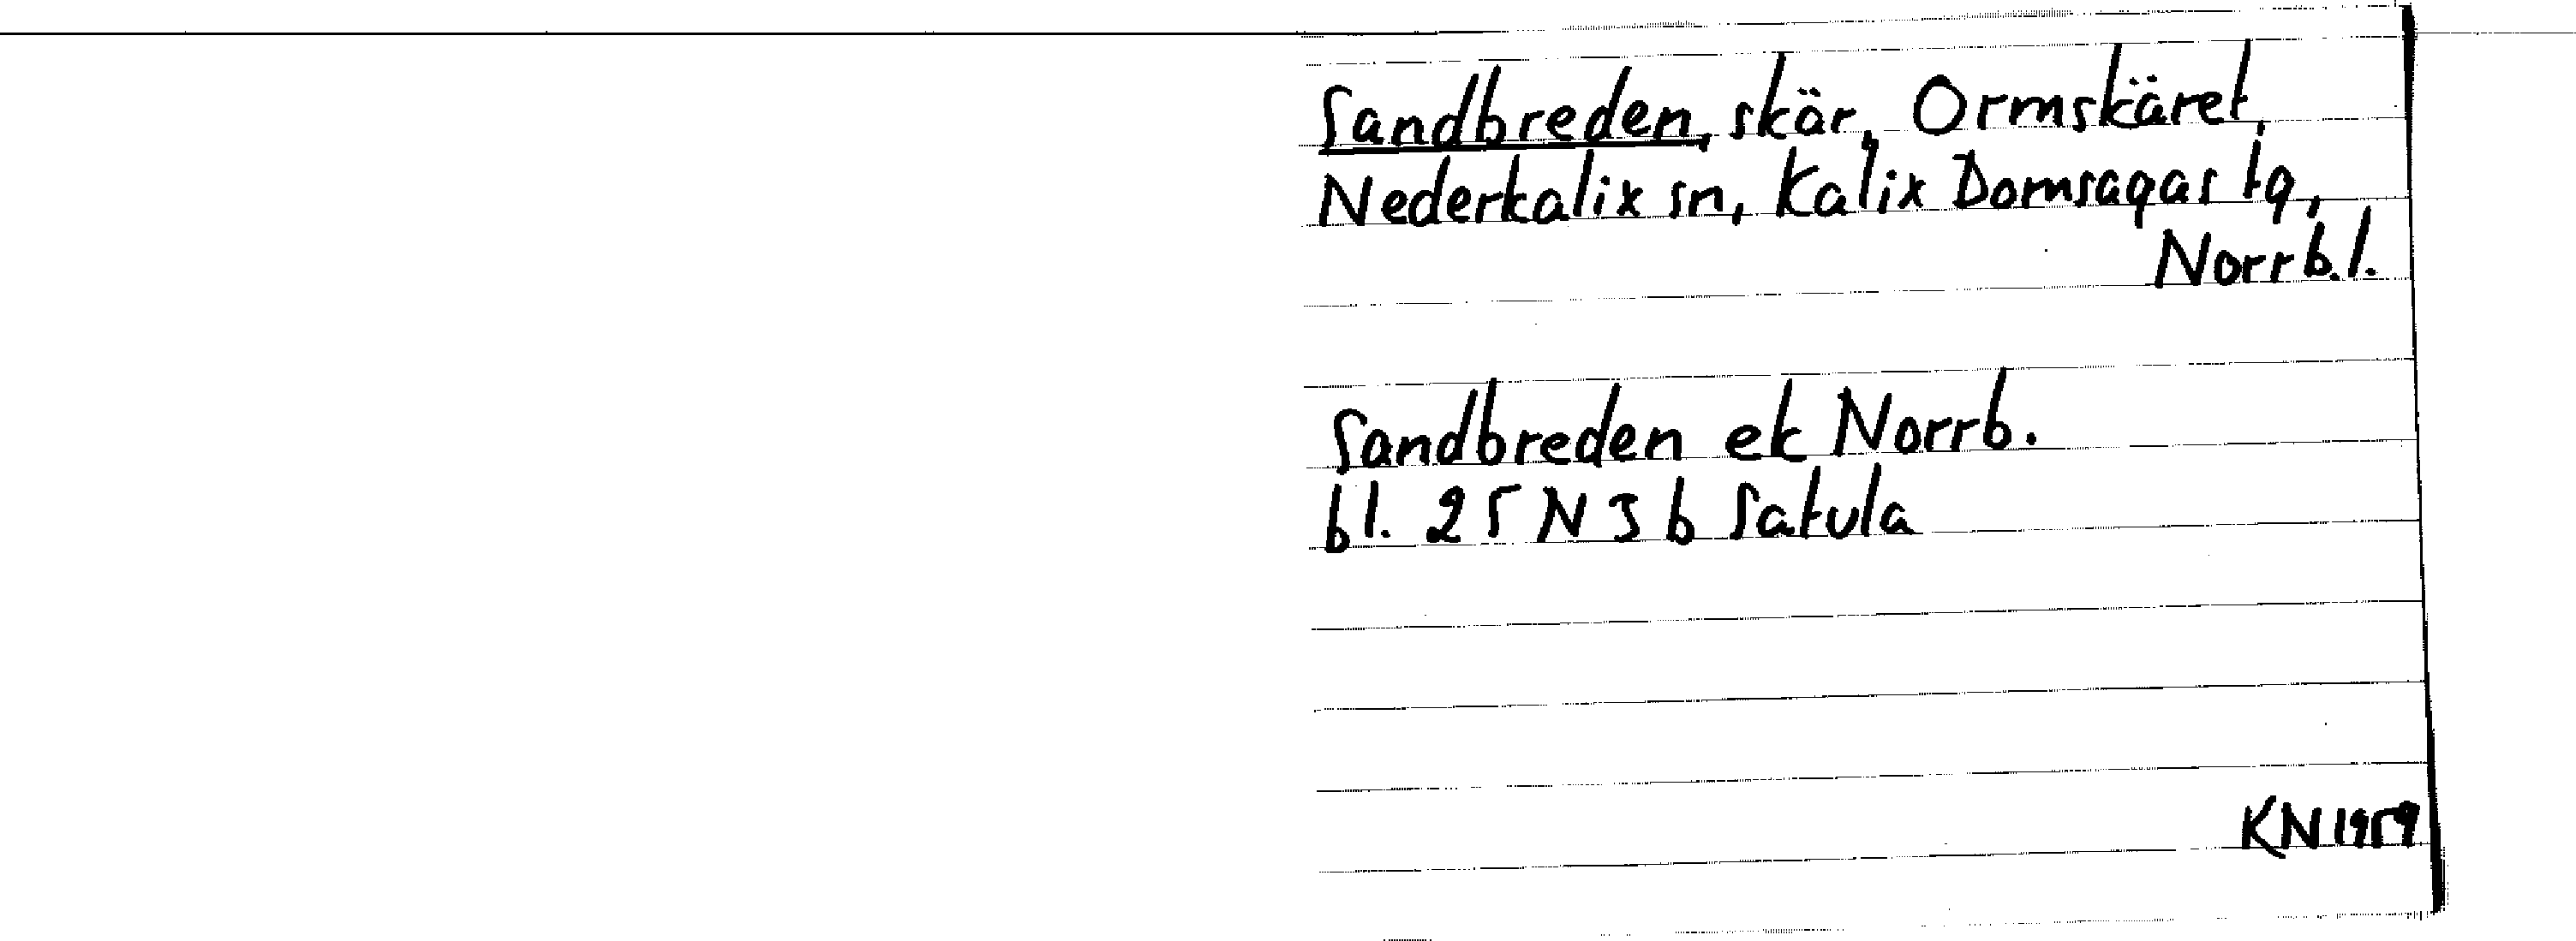 Sandbreden, skär, Ormskäret,
Nederkalix sn, Kalix Domsagas tg,
Norrb.l.
Sandbreden ek Norrb.
bl. 25 N 3 b Satula
KN 1959